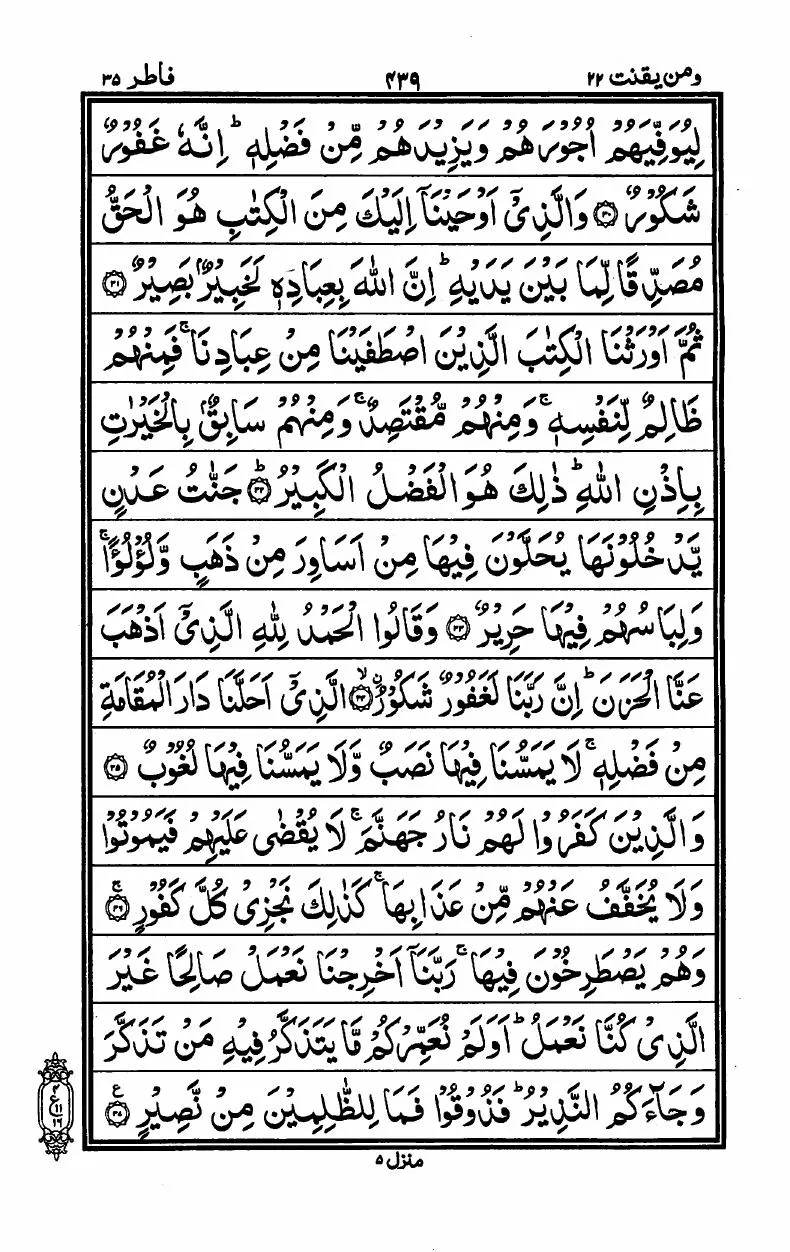 ومن يقنت ٢٢ ٤٣٩ فاطر ٣٥
لِيُوَفِّيَهُمْ اُجُوْرَهُمْ وَيَزِيْدَهُمْ مِّنْ فَضْلِهٖ ؕ اِنَّهٗ غَفُوْرٌ
شَكُوْرٌ ﴿۳۰﴾ وَالَّذِيْٓ اَوْحَيْنَآ اِلَيْكَ مِنَ الْكِتٰبِ هُوَ الْحَقُّ
مُصَدِّقًا لِّمَا بَيْنَ يَدَيْهِ ؕ اِنَّ اللّٰهَ بِعِبَادِهٖ لَخَبِيْرٌۢ بَصِيْرٌ ﴿۳۱﴾
ثُمَّ اَوْرَثْنَا الْكِتٰبَ الَّذِيْنَ اصْطَفَيْنَا مِنْ عِبَادِنَا ۚ فَمِنْهُمْ
ظَالِمٌ لِّنَفْسِهٖ ۚ وَمِنْهُمْ مُّقْتَصِدٌ ۚ وَمِنْهُمْ سَابِقٌۢ بِالْخَيْرٰتِ
بِاِذْنِ اللّٰهِ ؕ ذٰلِكَ هُوَ الْفَضْلُ الْكَبِيْرُ ﴿۳۲﴾ؕ جَنّٰتُ عَدْنٍ
يَّدْخُلُوْنَهَا يُحَلَّوْنَ فِيْهَا مِنْ اَسَاوِرَ مِنْ ذَهَبٍ وَّلُؤْلُؤًا ۚ
وَلِبَاسُهُمْ فِيْهَا حَرِيْرٌ ﴿۳۳﴾ وَقَالُوا الْحَمْدُ لِلّٰهِ الَّذِيْٓ اَذْهَبَ
عَنَّا الْحَزَنَ ؕ اِنَّ رَبَّنَا لَغَفُوْرٌ شَكُوْرُۨ ﴿۳۴﴾ۙ الَّذِيْٓ اَحَلَّنَا دَارَ الْمُقَامَةِ
مِنْ فَضْلِهٖ ۚ لَا يَمَسُّنَا فِيْهَا نَصَبٌ وَّلَا يَمَسُّنَا فِيْهَا لُغُوْبٌ ﴿۳۵﴾
وَالَّذِيْنَ كَفَرُوْا لَهُمْ نَارُ جَهَنَّمَ ۚ لَا يُقْضٰى عَلَيْهِمْ فَيَمُوْتُوْا
وَلَا يُخَفَّفُ عَنْهُمْ مِّنْ عَذَابِهَا ؕ كَذٰلِكَ نَجْزِيْ كُلَّ كَفُوْرٍ ﴿۳۶﴾ۚ
وَهُمْ يَصْطَرِخُوْنَ فِيْهَا ۚ رَبَّنَآ اَخْرِجْنَا نَعْمَلْ صَالِحًا غَيْرَ
الَّذِيْ كُنَّا نَعْمَلُ ؕ اَوَلَمْ نُعَمِّرْكُمْ مَّا يَتَذَكَّرُ فِيْهِ مَنْ تَذَكَّرَ
وَجَآءَكُمُ النَّذِيْرُ ؕ فَذُوْقُوْا فَمَا لِلظّٰلِمِيْنَ مِنْ نَّصِيْرٍ ﴿۳۷﴾ ع
٤ ع ١١ ١٦
منزل ٥